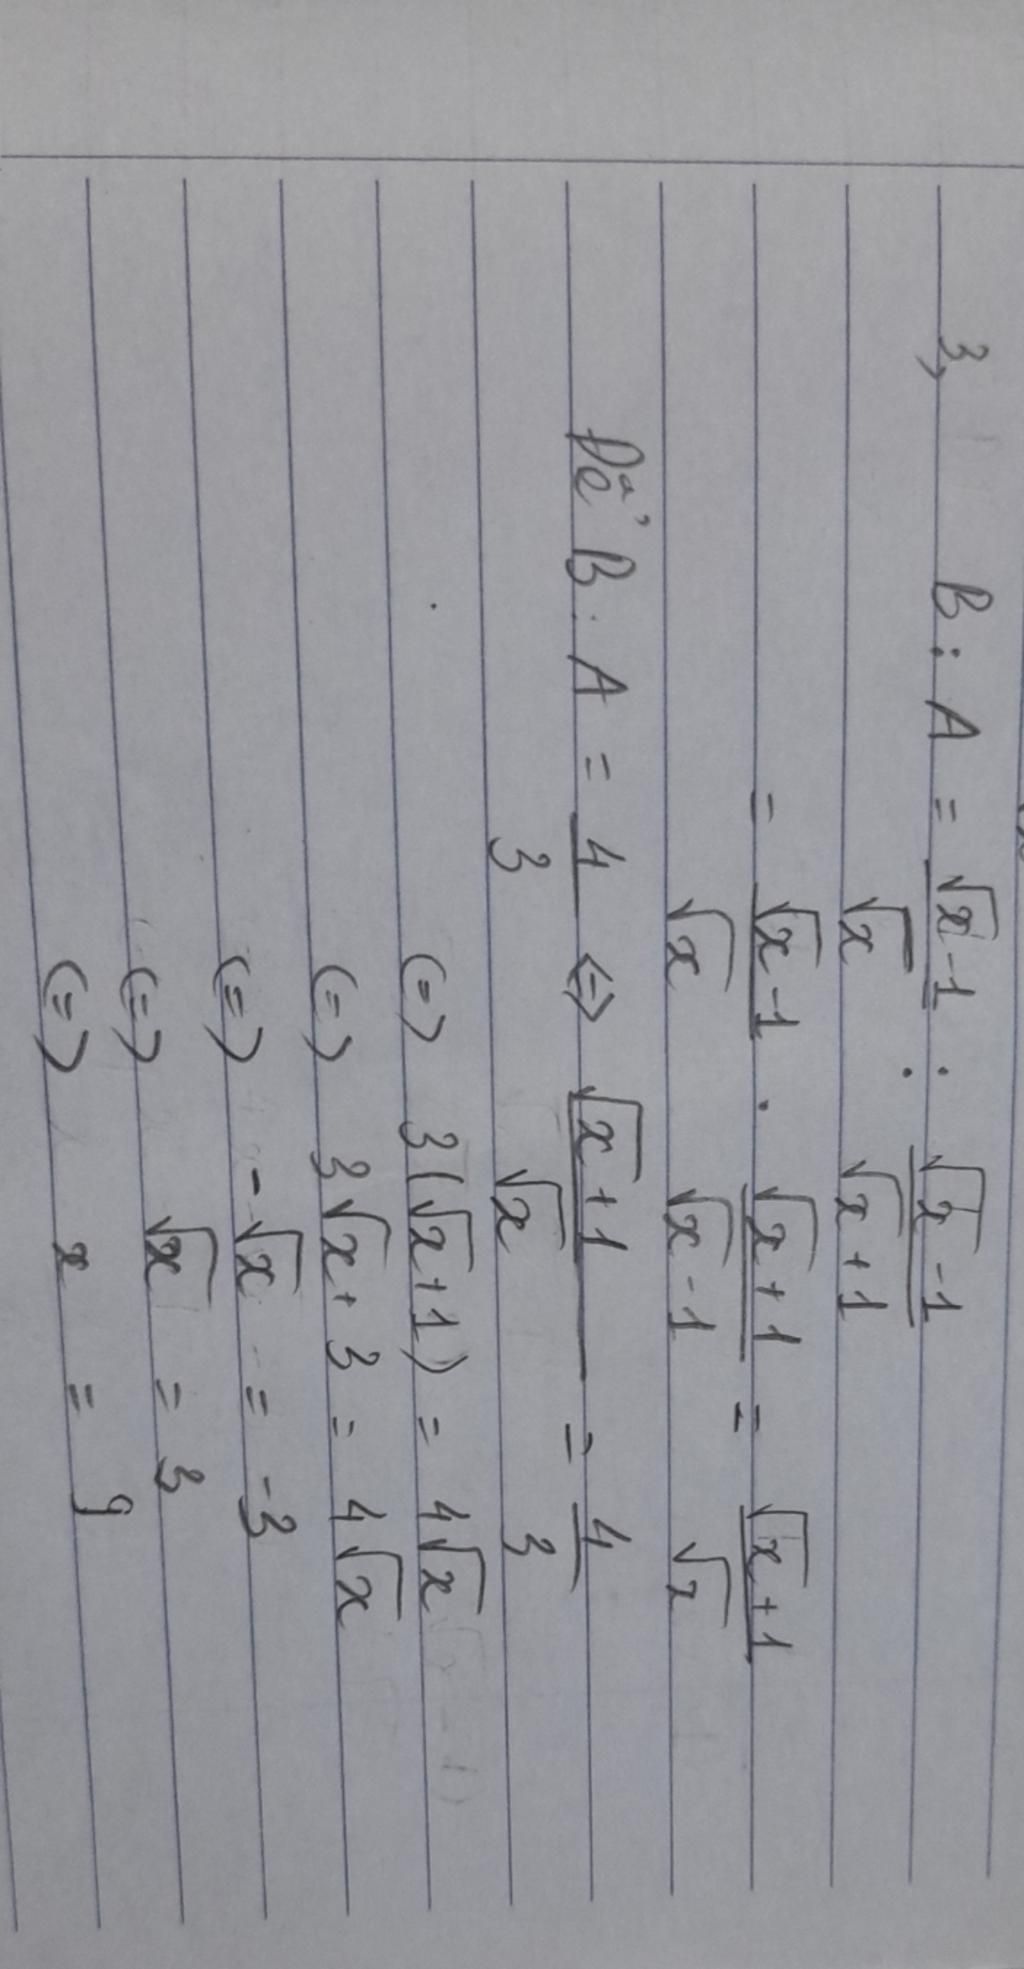 3, B : A = (√x - 1)/√x : (√x - 1)/(√x + 1)
= (√x - 1)/√x . (√x + 1)/(√x - 1) = (√x + 1)/√x
Để B : A = 4/3 <=> (√x + 1)/√x = 4/3
(=) 3(√x + 1) = 4√x
(=) 3√x + 3 = 4√x
(=) -√x = -3
(=) √x = 3
(=) x = 9